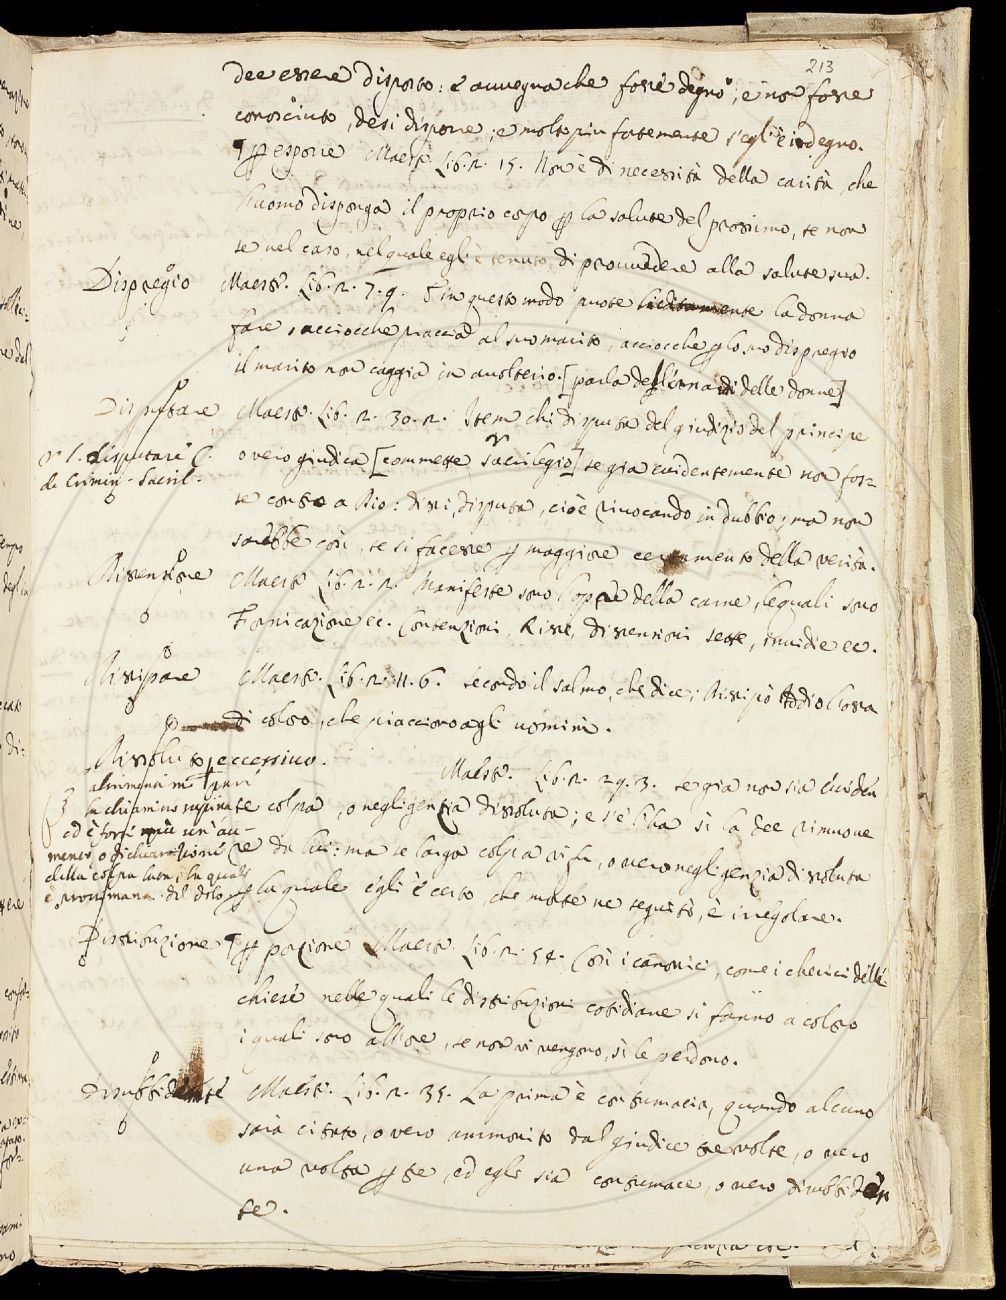 213
dee essere disposto: è auuegna che fosse degno, e non fosse
conosciuto, desi disporre; e molto piu fortemente s'egl'è indegno.
¶ esporre Maestr. Lib. 2. 15. Non è di necessità della carità, che
huomo disponga il proprio corpo ꝑ la salute del prossimo, se non
se nel caso, nel quale egli è tenuto di prouuedere alla salute sua.
Dispregio Maestr. Lib. 2. 7. 9. In questo modo puote la donna
fare, acciocche piaccia al suo marito, acciocche ꝑ lo suo dispregio
il marito non caggia in auolterio. [parla degl'ornati delle donne]
Disputare Maestr. Lib. 2. 30. 2. Item chi disputa del giudizio del principe
v. l. disputare C. de Crimin. Sacril.
overo giudica [commette sacrilegio] se gia euidentemente non fos=
se contro a Dio: dissi, disputa, cioè riuocando in dubbio; ma non
sarebbe così, se si facesse ꝑ maggiore certamento della verità.
Dissensione Maestr. Lib. 2. 2. Manifeste sono l'opre della carne, lequali sono
Fornicazione ec. Contenzioni, Risse, dissensioni sette, inuidie ec.
Dissipare Maestr. Lib. 2. 11. 6. secondo il salmo, che dice; Dissipò Iddio l'ossa
di coloro, che piacciono agli uomini.
Dissoluto, eccessiuo.
Maestr. Lib. 2. 29. 3. se gia non sia éuiden
te colpa, o negligenzia dissoluta; e s'è l'ha sì la dee rimuoue
re da lui: ma se larga colpa vi fu, o vero negligenzia dissoluta
ꝑ la quale egli è certo, che morte ne seguitò, è irregolare.
ed è forsi un au-
mento, o dichiarazione
della colpa lata; la quale
è prossimana del dolo
Distribuzione ¶ porzione Maestr. Lib. 2. 54. Così i canonici, come i cherici delle
chiese nelle quali le distribuzioni cotidiane si fanno a coloro
i quali sono all'ore, se non vi vengono, sì le perdono.
disubbidente Maestr. Lib. 2. 35. La prima è contumacia, quando alcuno
sarà citato, o vero ammonito dal giudice tre volte, o vero
una volta ꝑ tre, ed egli sia contumace, o vero disubbiden
te.